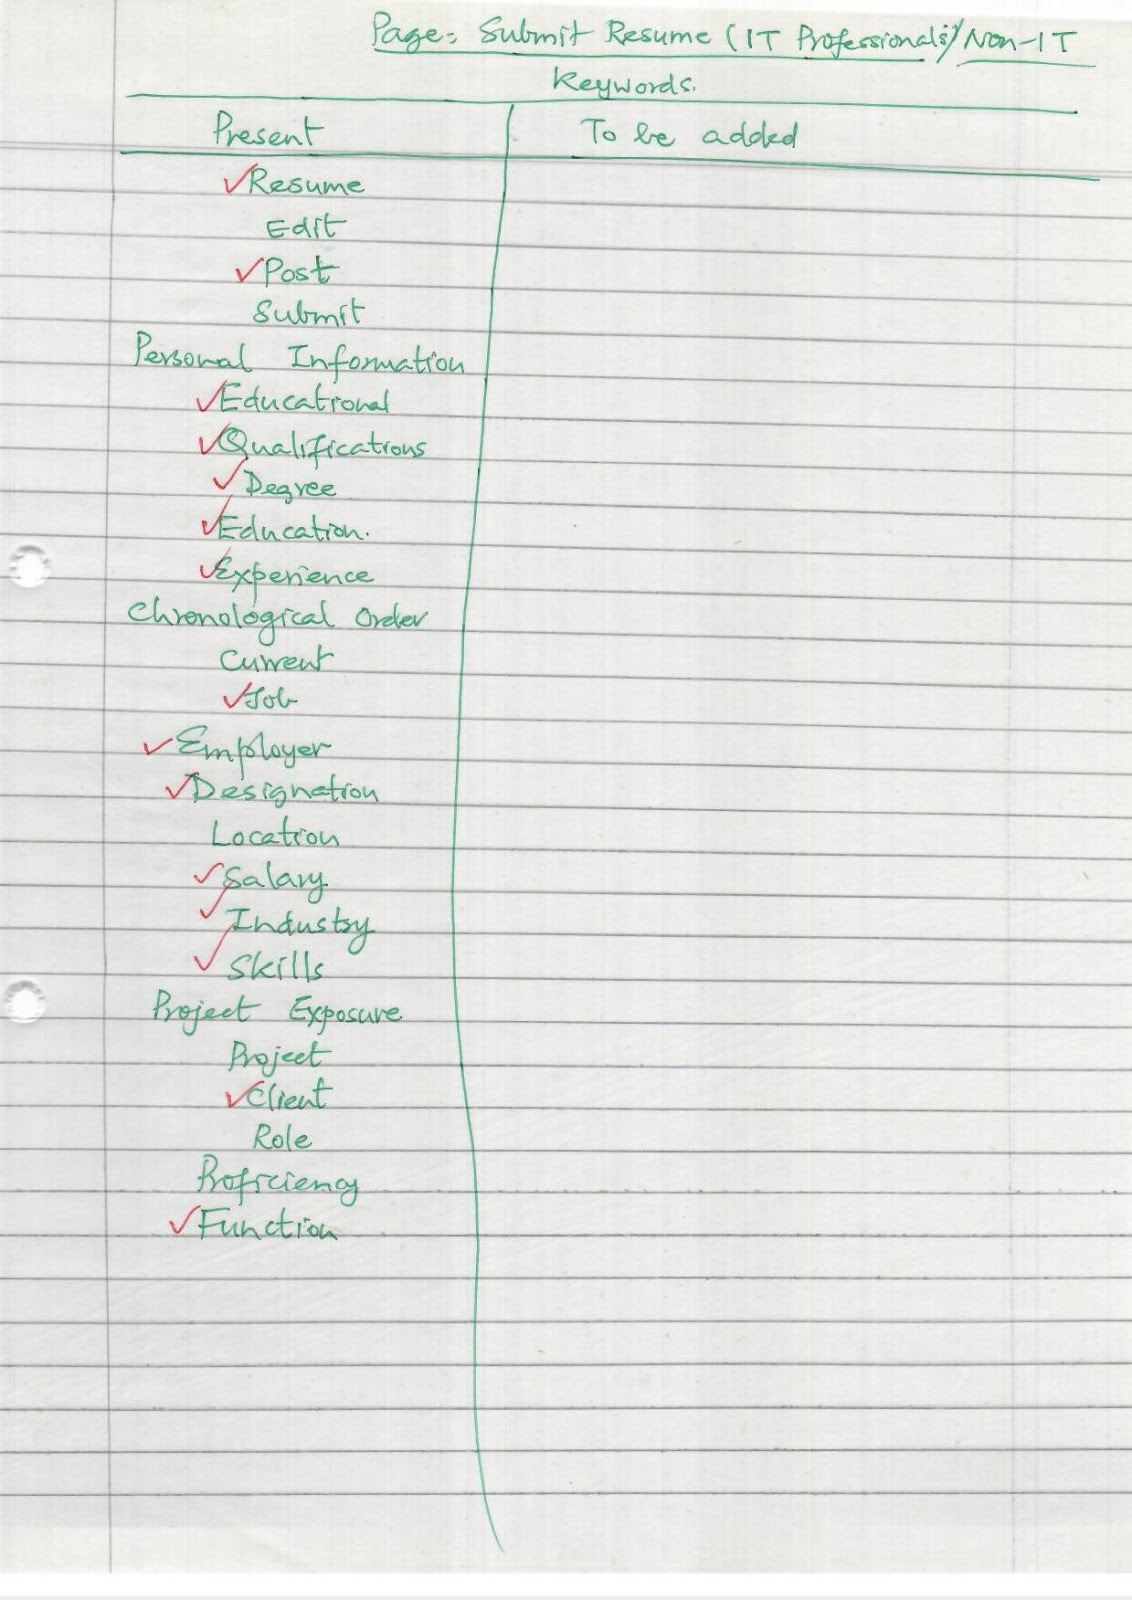 Page: Submit Resume (IT Professionals)/Non-IT
Keywords.
Present To be added
✓Resume
Edit
✓Post
Submit
Personal Information
✓Educational
✓Qualifications
✓Degree
✓Education.
✓Experience
Chronological Order
Current
✓Job
✓Employer
✓Designation
Location
✓Salary
✓Industry
✓Skills
Project Exposure
Project
✓Client
Role
Proficiency
✓Function